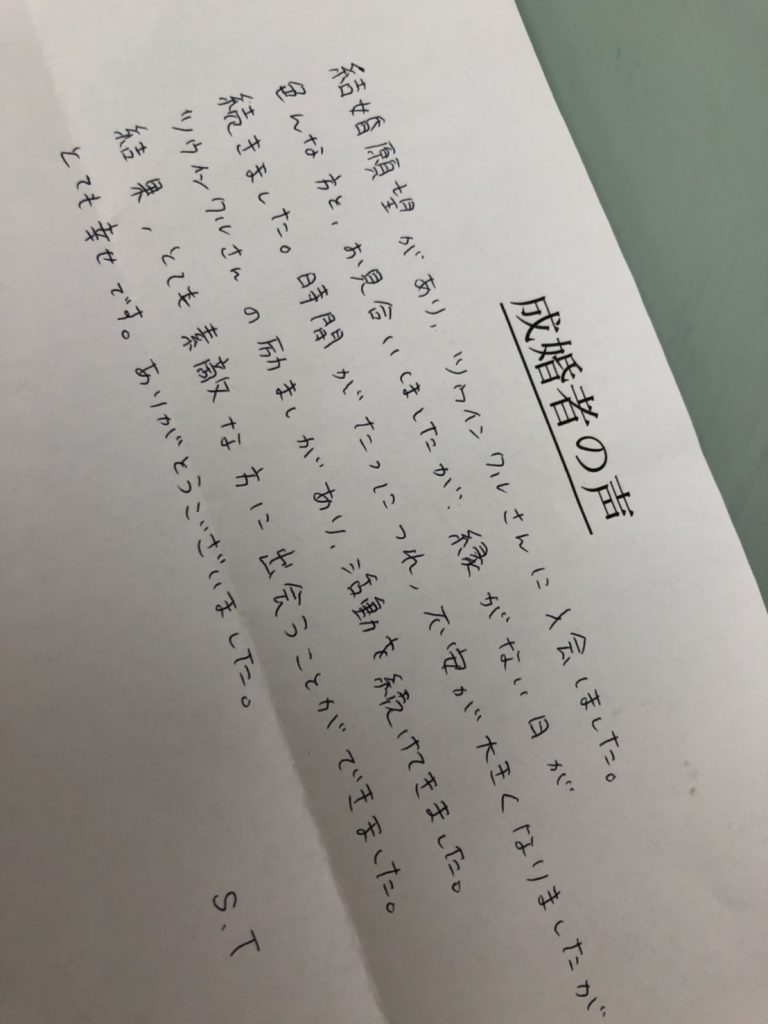 成婚者の声
結婚願望があり、ツウインクルさんに入会しました。
色んな方と、お見合いしましたが、縁がない日が
続きました。時間がたつにつれ、不安が大きくなりましたが
ツウインクルさんの励ましがあり、活動を続けてきました。
結果、とても素敵な方に出会うことができました。
とても幸せです。ありがとうございました。
S.T